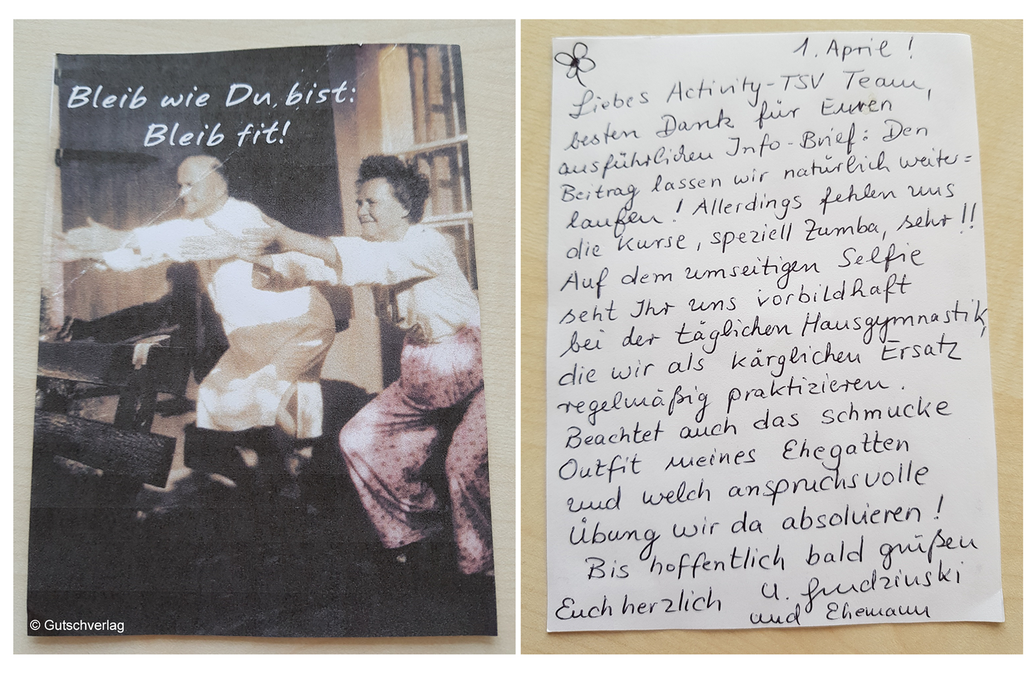 Bleib wie Du bist:
Bleib fit!
© Gutschverlag
1. April!
Liebes Activity-TSV Team,
besten Dank für Euren
ausführlichen Info-Brief: Den
Beitrag lassen wir natürlich weiter=
laufen! Allerdings fehlen uns
die Kurse, speziell Zumba, sehr!!
Auf dem umseitigen Selfie
seht Ihr uns vorbildhaft
bei der täglichen Hausgymnastik,
die wir als kärglichen Ersatz
regelmäßig praktizieren.
Beachtet auch das schmucke
Outfit meines Ehegatten
und welch anspruchsvolle
Übung wir da absolvieren!
Bis hoffentlich bald grüßen
Euch herzlich U. Grudzinski
und Ehemann